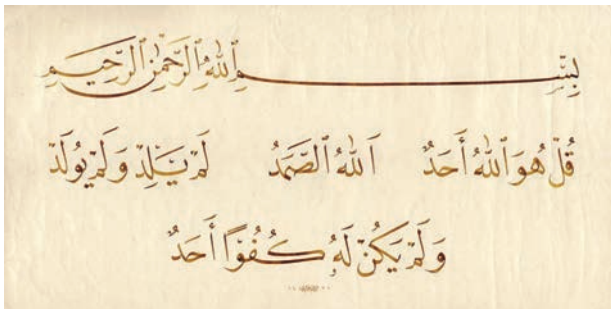 بِسْمِ ٱللَّهِ ٱلرَّحْمَٰنِ ٱلرَّحِيمِ
قُلْ هُوَ ٱللَّهُ أَحَدٌ ٱللَّهُ ٱلصَّمَدُ لَمْ يَلِدْ وَلَمْ يُولَدْ
وَلَمْ يَكُنْ لَهُ كُفُوًا أَحَدٌ